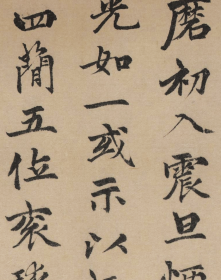 磨初入震旦
光如一或示以
四蕳五位衮